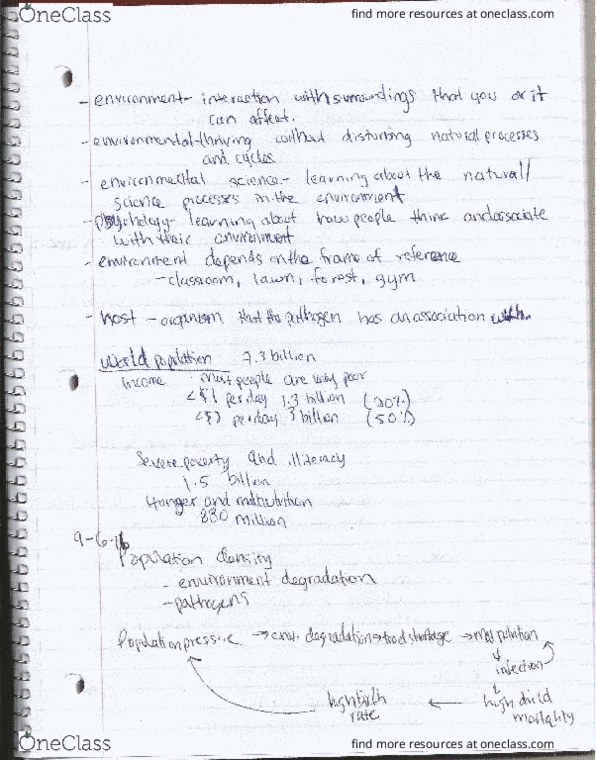 OneClass
find more resources at oneclass.com
- environment- interaction with surroundings that you or it
can affect.
- environmental-thriving without disturbing natural processes
and cycles
- environmental science- learning about the natural/
science processes in the environment
- psychology- learning about how people think and associate
with their environment
- environment depends on the frame of reference
- classroom, lawn, forest, gym
- host - organism that the pathogen has an association with.
World population 7.3 billion
Income most people are very poor
<$1 per day 1.3 billion (20%)
<$2 per day 3 billion (50%)
Severe poverty and illiteracy
1.5 billion
Hunger and malnutrition
830 million
9-6-16
Population density
- environment degradation
- pathogens
Population pressure → env. degradation → food shortage → malnutrition
↓ infection
↓
high birth ← high child
rate mortality
OneClass
find more resources at oneclass.com